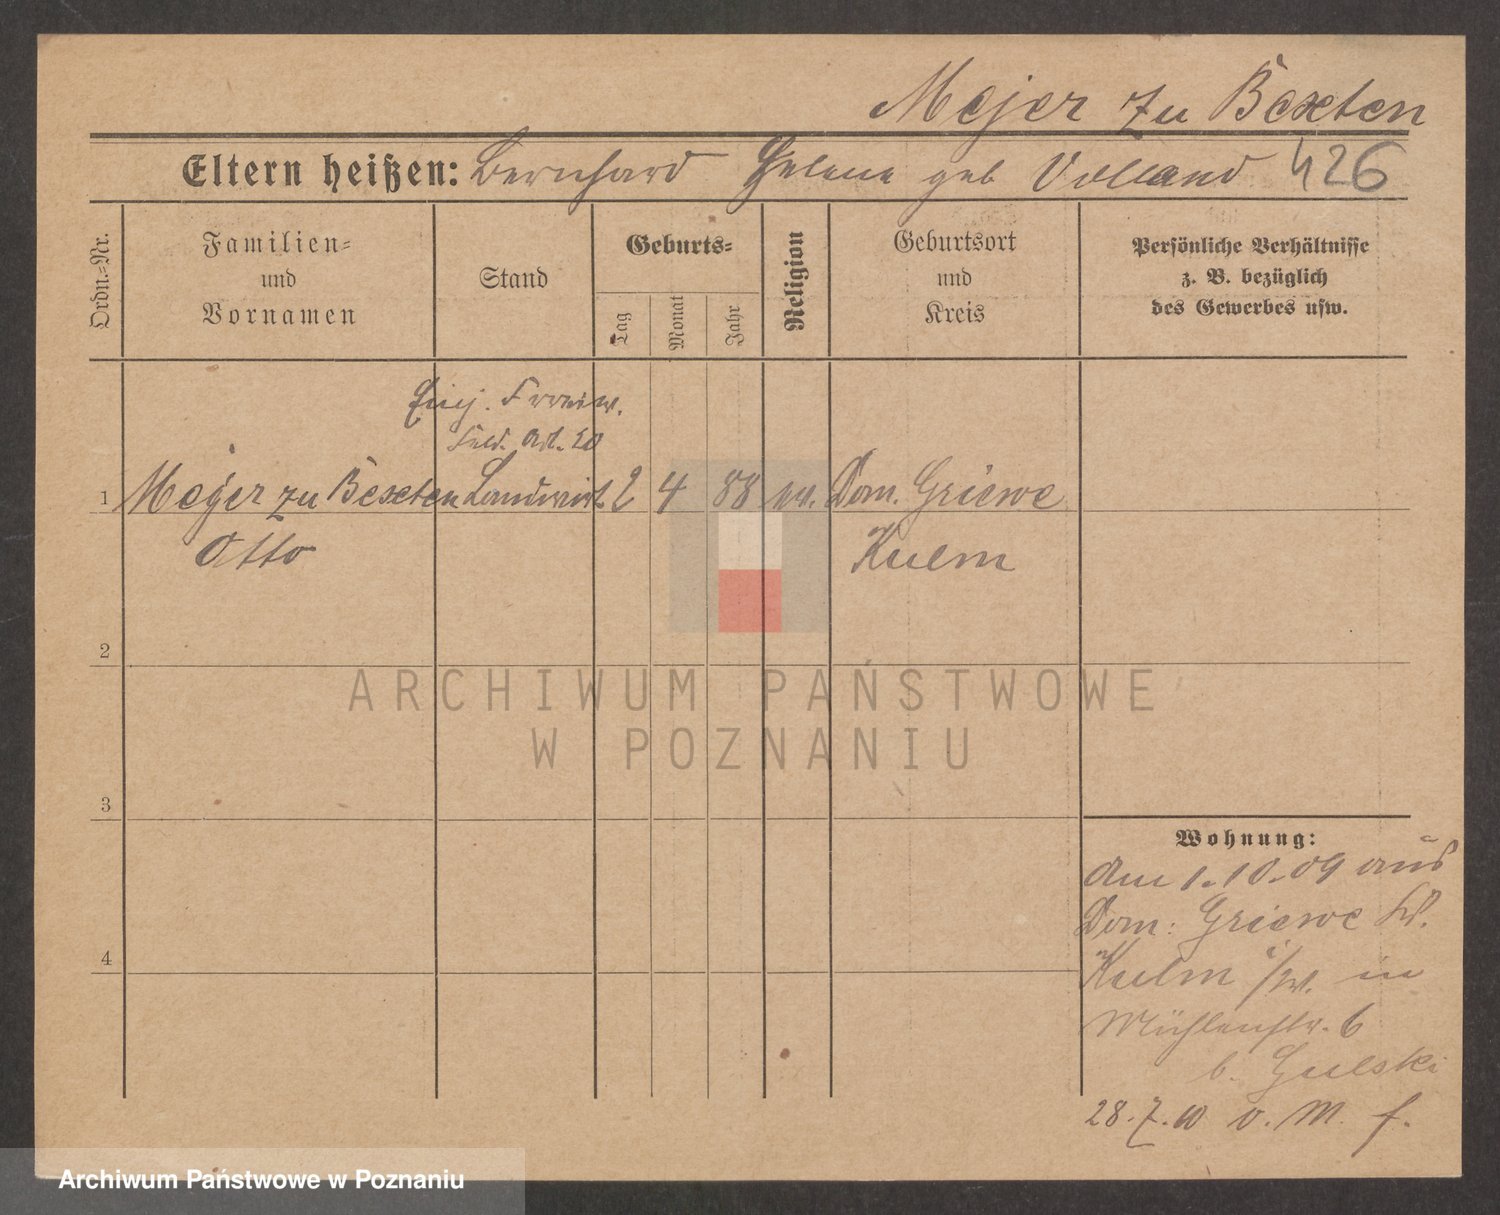 Mejer zu Bexten
Eltern heißen: Bernhard Helene geb Volland 426
Ordn.-Nr.
Familien-
und
Vornamen
Stand
Geburts-
Tag
Monat
Jahr
Religion
Geburtsort
und
Kreis
Persönliche Verhältnisse
z. B. bezüglich
des Gewerbes usw.
Einj. Freiw.
Feld. Art. 20
1 Mejer zu Bexten Landwirt 2 4 88 ev. Dom. Griewe
Otto Kulm
2
3
4
ARCHIWUM PAŃSTWOWE
W POZNANIU
Wohnung:
am 1.10.09 aus
Dom: Griewe
Kulm i/W. in
Mühlenstr. 6
b. Gulski
28.7.10 v. M. f.
Archiwum Państwowe w Poznaniu